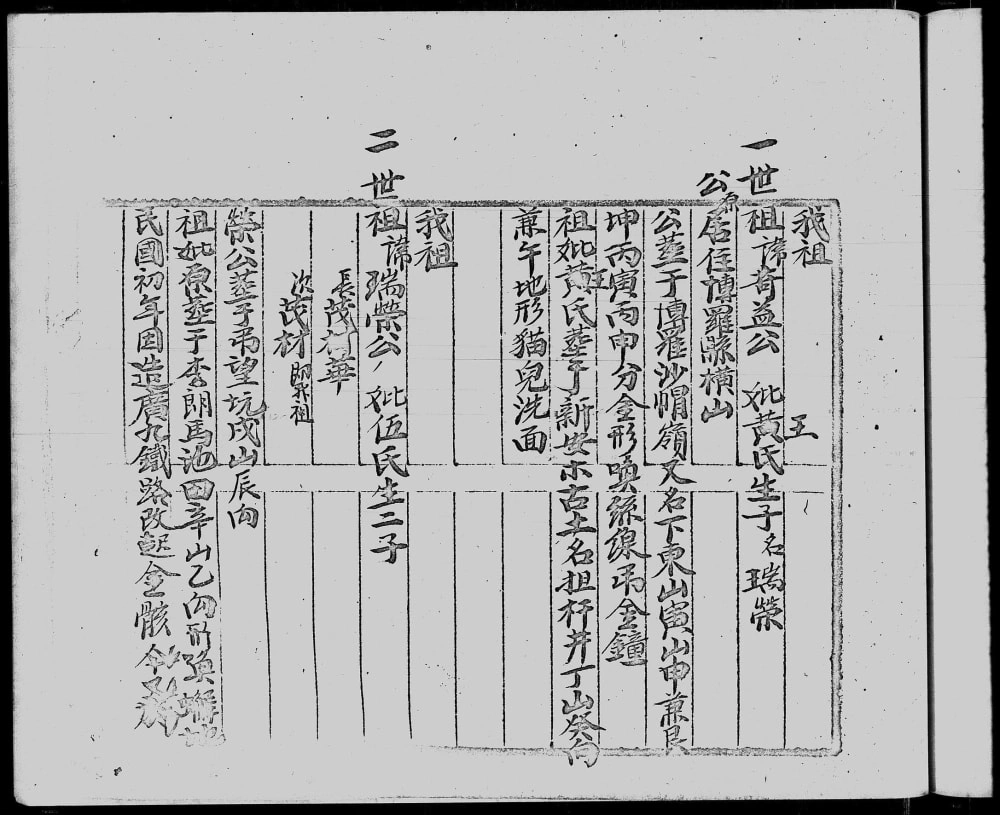 我祖
一世祖諱奇益公 妣黃王氏生子名瑞榮
公原居住博羅縣橫山
公塟于博羅沙帽嶺又名下東山寅山申兼艮
坤丙寅丙申分金形喚絲線吊金鐘
祖妣黃王氏塟于新安木古土名担杆井丁山癸向
兼午地形貓兒洗面
我祖
二世祖諱瑞榮公 妣伍氏生二子
長茂華
次茂材即我祖
榮公塟于吊望坑戌山辰向
祖妣原塟于李朗馬池田辛山乙向形喚蠏地
民國初年因造廣九鐵路改起金骸